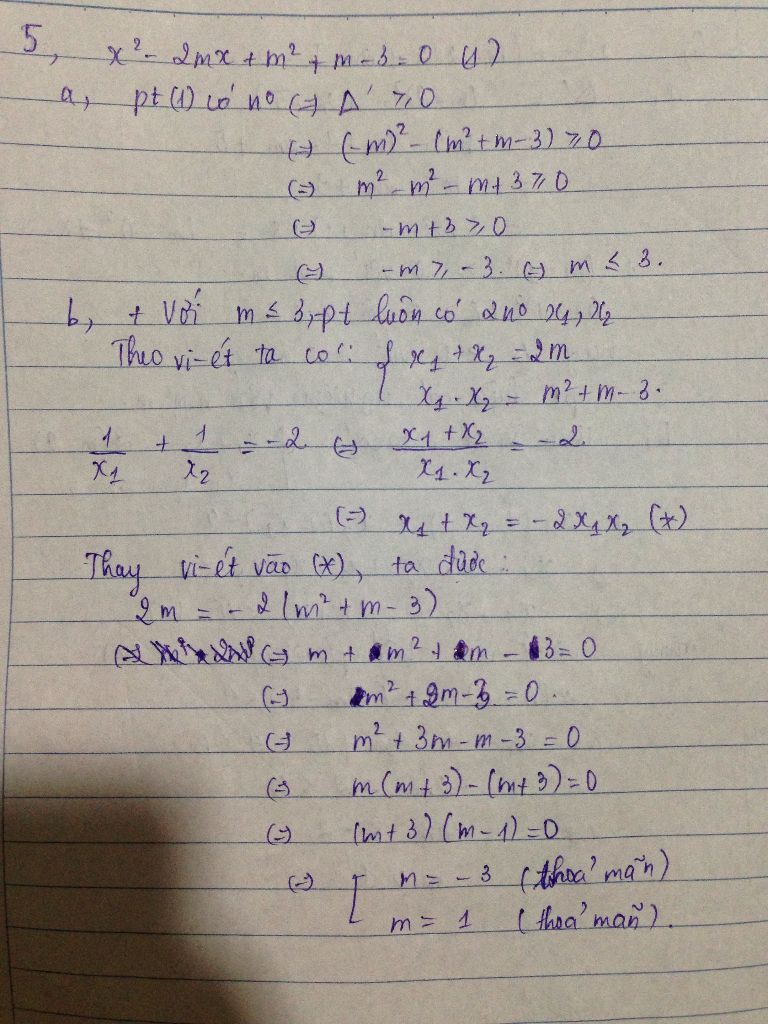 5, x² - 2mx + m² + m - 3 = 0 (1)
a, pt (1) có no (=) Δ' ≥ 0
(=) (-m)² - (m² + m - 3) ≥ 0
(=) m² - m² - m + 3 ≥ 0
(=) -m + 3 ≥ 0
(=) -m ≥ -3. (=) m ≤ 3.
b, + Với m ≤ 3, pt luôn có 2 no x₁, x₂
Theo vi-ét ta có: { x₁ + x₂ = 2m
x₁ . x₂ = m² + m - 3.
1/x₁ + 1/x₂ = -2 (=) (x₁ + x₂)/(x₁ . x₂) = -2
(=) x₁ + x₂ = -2x₁x₂ (*)
Thay vi-ét vào (*), ta được:
2m = -2(m² + m - 3)
(=) m + m² + m - 3 = 0
(=) m² + 2m - 3 = 0.
(=) m² + 3m - m - 3 = 0
(=) m(m + 3) - (m + 3) = 0
(=) (m + 3)(m - 1) = 0
(=) [ m = -3 (thoả mãn)
m = 1 (thoả mãn).